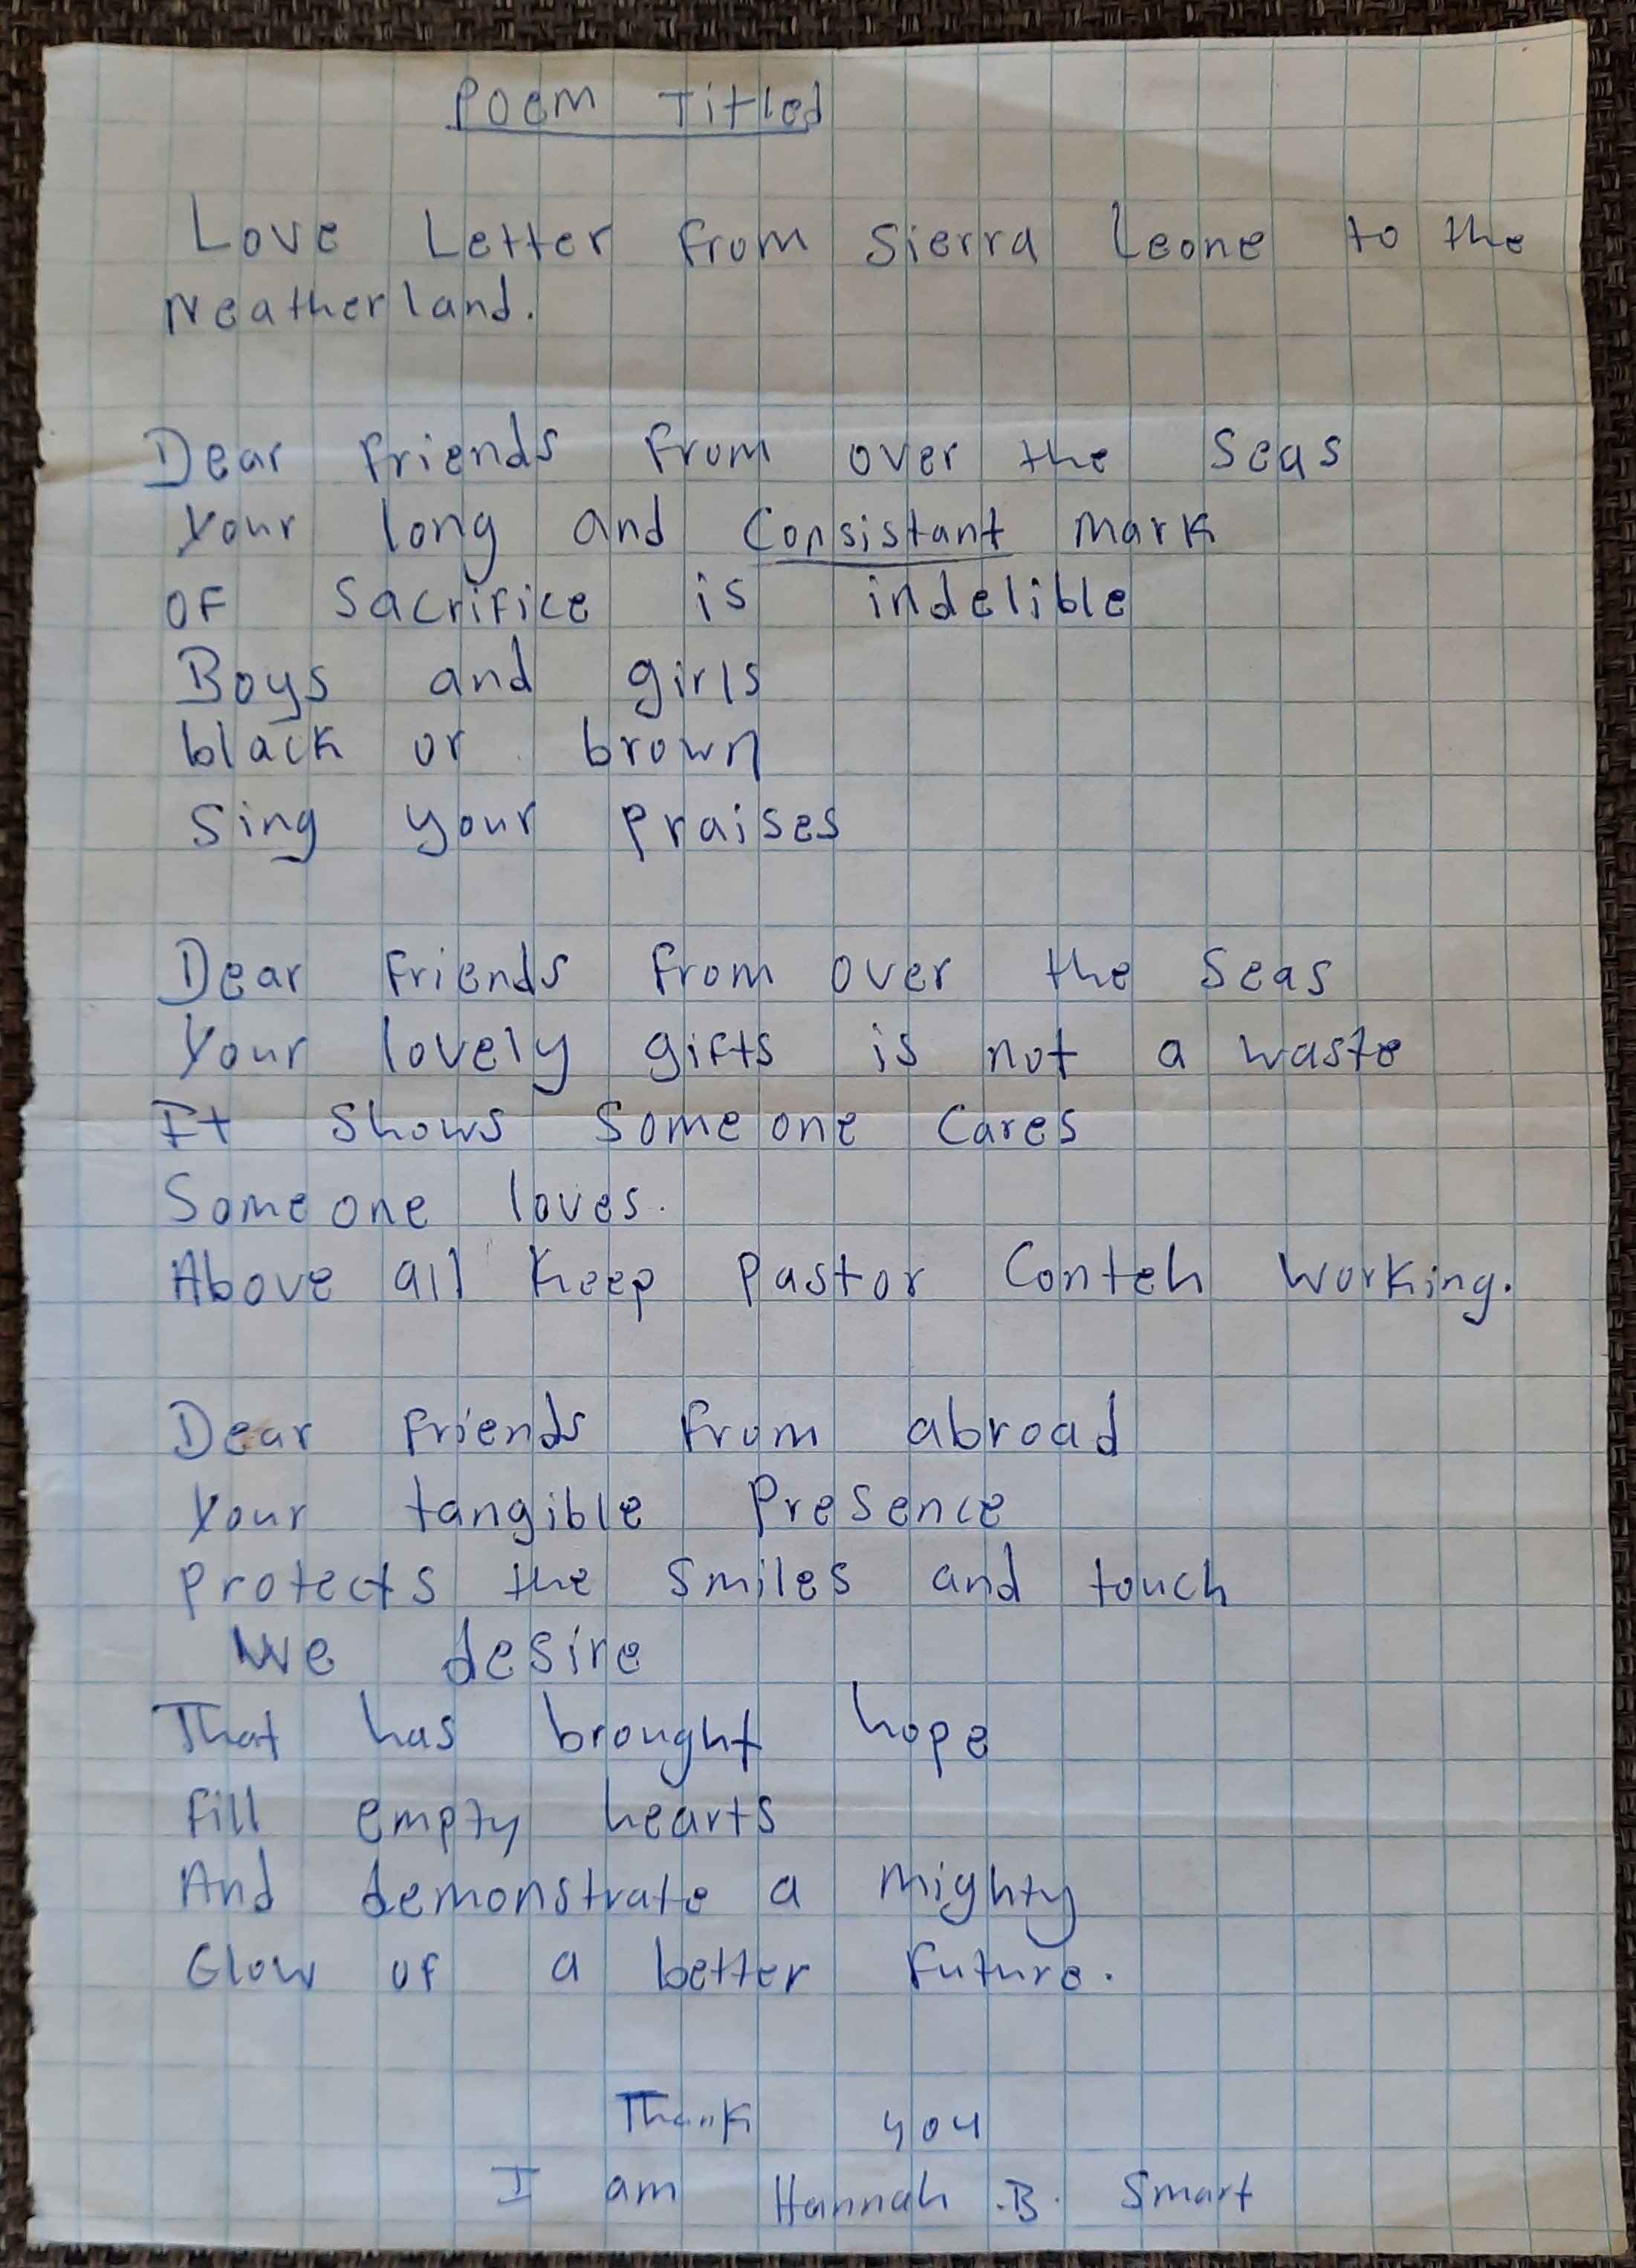 Poem Titled
Love Letter from Sierra Leone to the
Neatherland.
Dear friends from over the seas
Your long and Consistant mark
of sacrifice is indelible
Boys and girls
black or brown
Sing your praises
Dear friends from over the seas
Your lovely gifts is not a waste
It shows someone cares
Someone loves.
Above all keep Pastor Conteh working.
Dear friends from abroad
Your tangible presence
protects the smiles and touch
We desire
That has brought hope
fill empty hearts
And demonstrate a mighty
Glow of a better future.
Thank you
I am Hannah .B. Smart